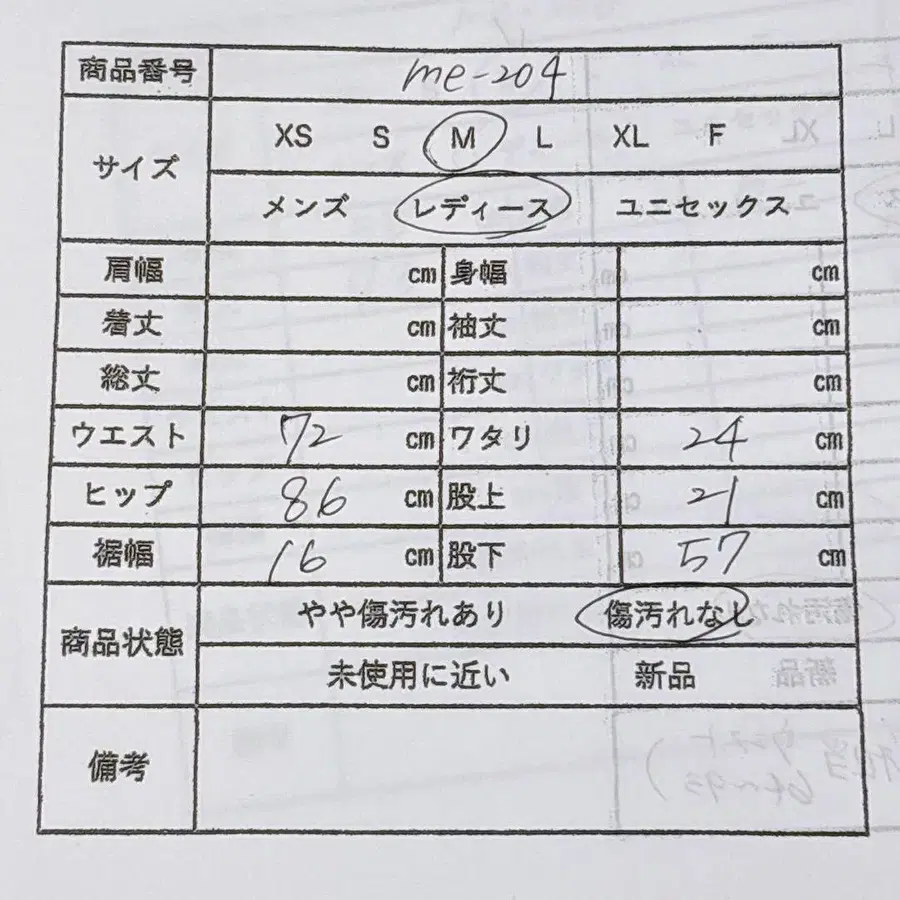 商品番号 me-204
サイズ
XS S M L XL F
メンズ レディース ユニセックス
肩幅 cm 身幅 cm
着丈 cm 袖丈 cm
総丈 cm 裄丈 cm
ウエスト 72 cm ワタリ 24 cm
ヒップ 86 cm 股上 21 cm
裾幅 16 cm 股下 57 cm
商品状態
やや傷汚れあり 傷汚れなし
未使用に近い 新品
備考